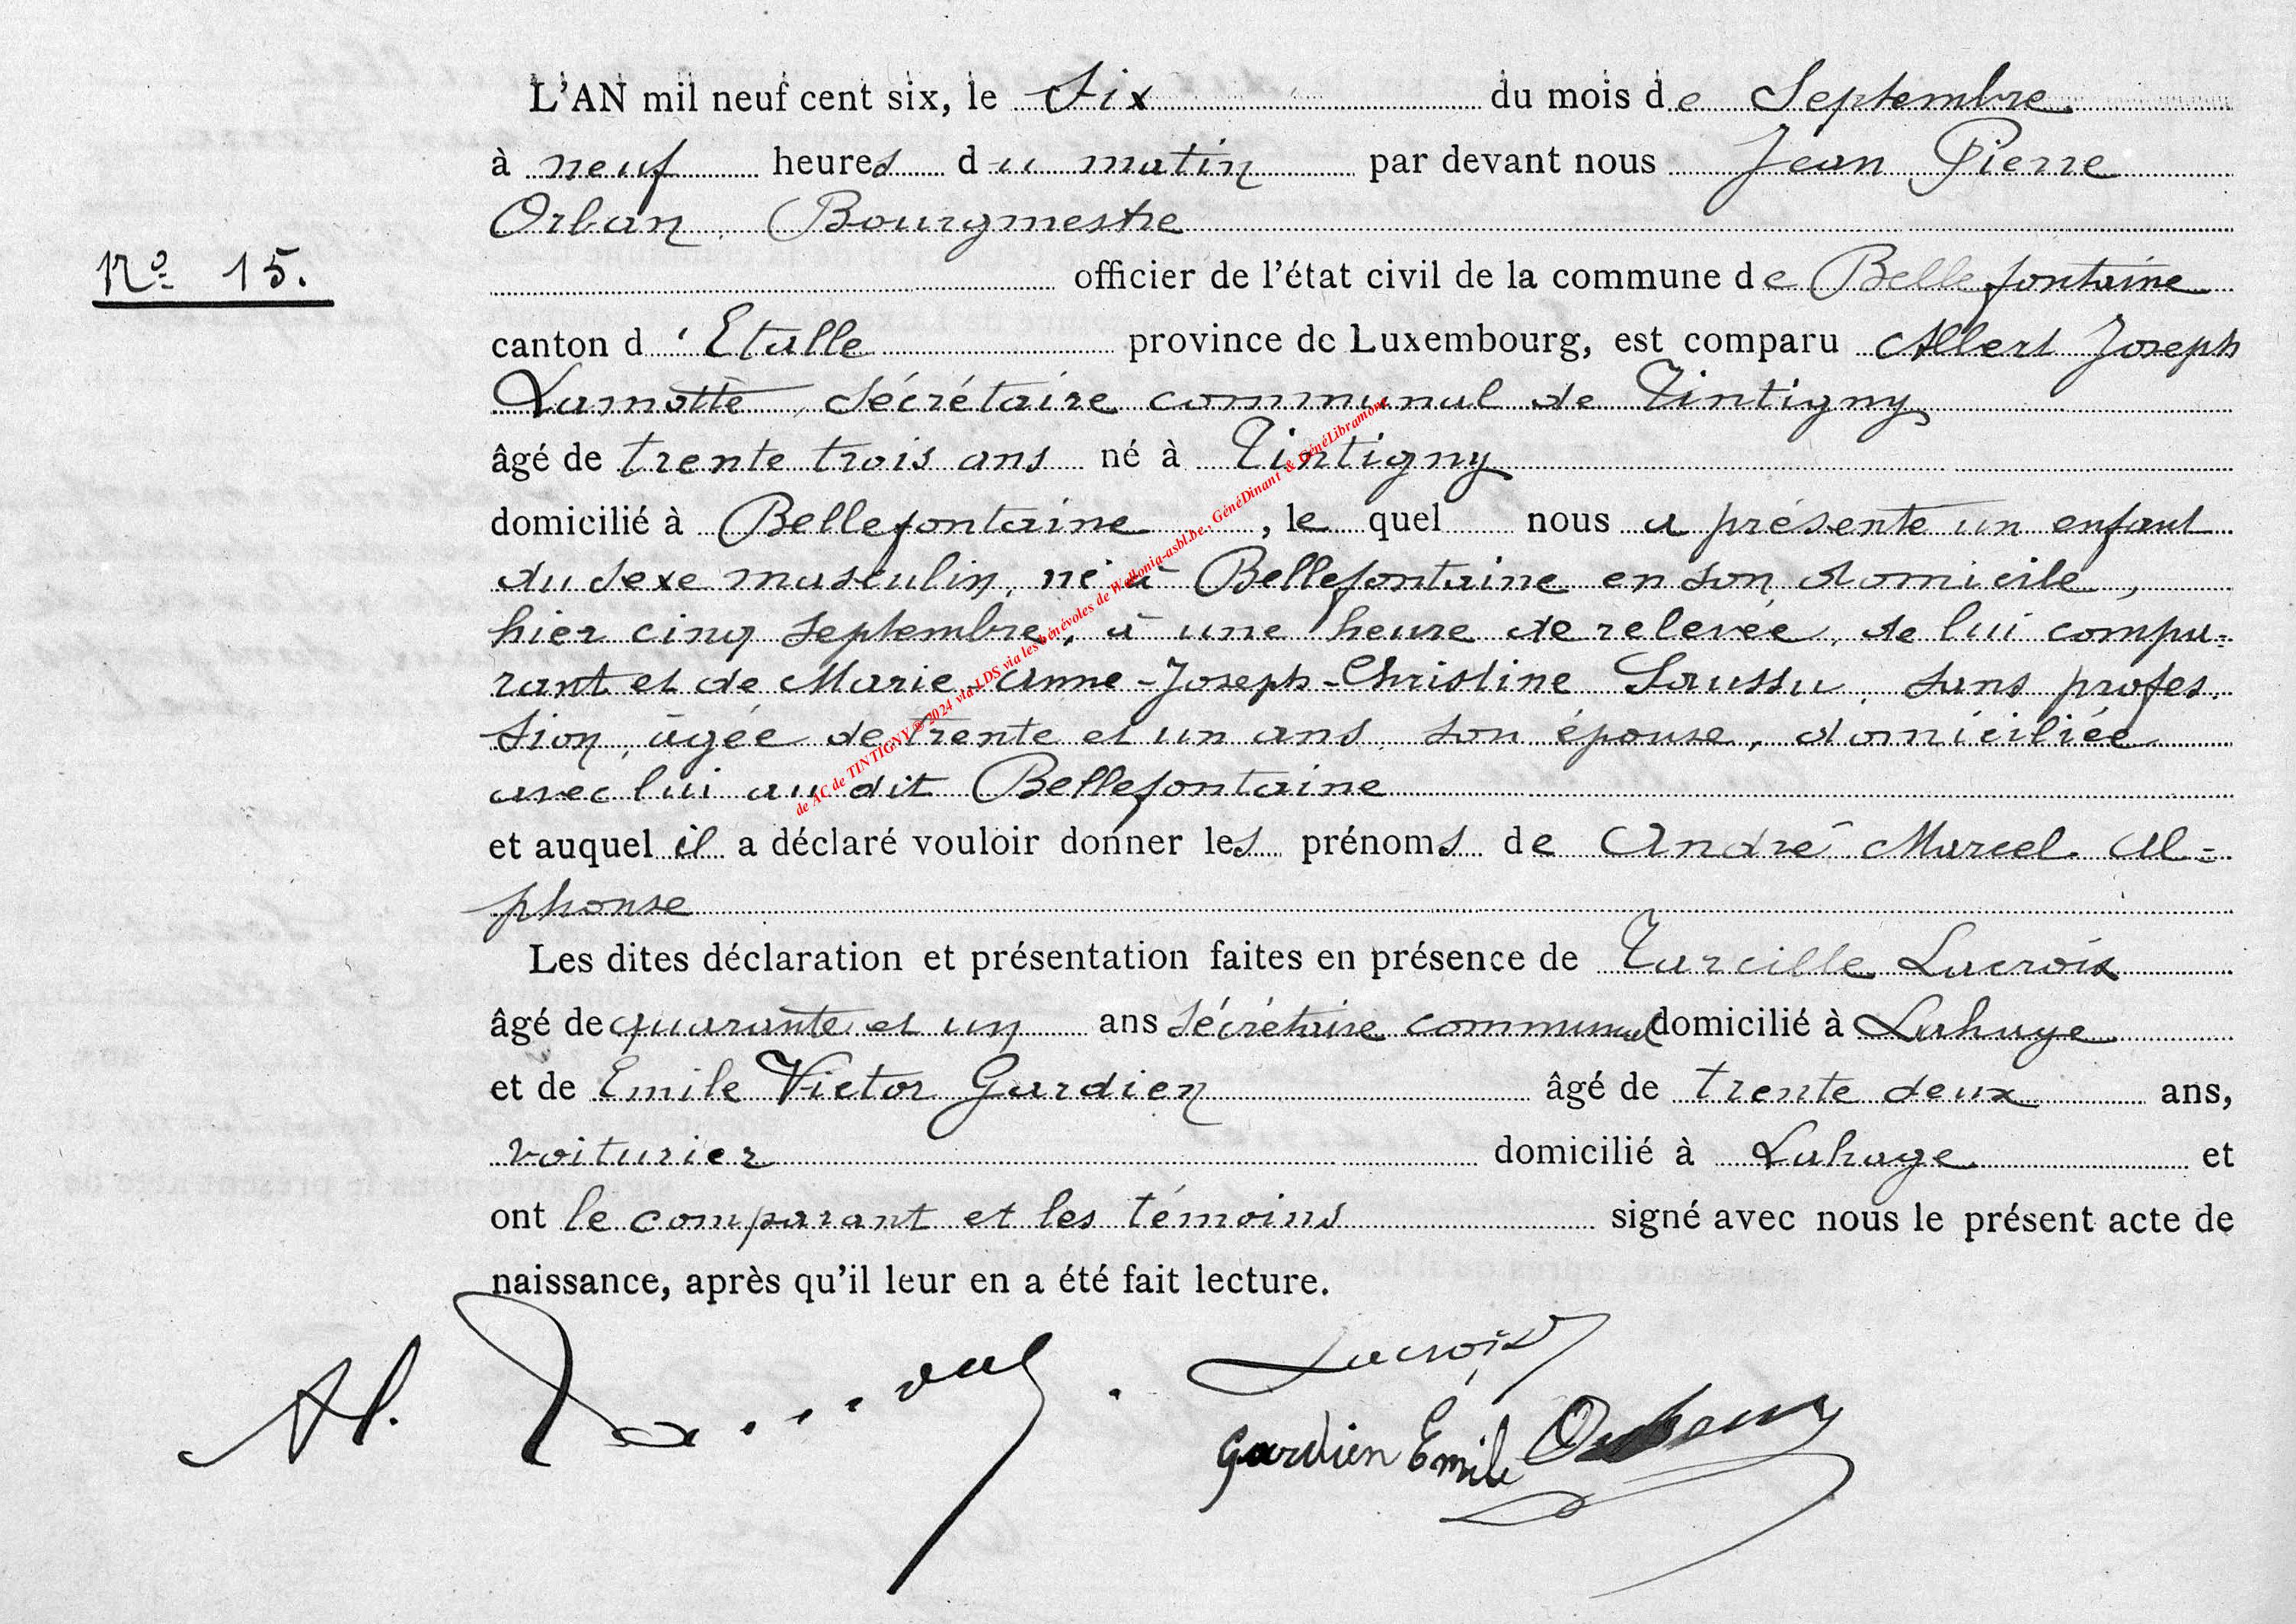 L'AN mil neuf cent six, le Six du mois de Septembre
à neuf heures du matin par devant nous Jean Pierre
Orban, Bourgmestre
Nº 15.
officier de l'état civil de la commune de Bellefontaine
canton d'Etalle province de Luxembourg, est comparu Albert Joseph
Lamotte, sécrétaire communal de Tintigny
âgé de trente trois ans né à Tintigny
domicilié à Bellefontaine, le quel nous a présenté un enfant
du sexe masculin, né à Bellefontaine en son domicile,
hier cinq septembre, à une heure de relevée, de lui compa-
rant et de Marie-Anne-Joseph-Christine Saussu, sans profes-
sion, âgée de trente et un ans, son épouse, domiciliée
avec lui au dit Bellefontaine
et auquel il a déclaré vouloir donner les prénoms de André Marcel Al-
phonse
Les dites déclaration et présentation faites en présence de Tarcille Lacroix
âgé de quarante et un ans sécrétaire communal domicilié à Lahage
et de Emile Victor Gardien âgé de trente deux ans,
voiturier domicilié à Lahage et
ont le comparant et les témoins signé avec nous le présent acte de
naissance, après qu'il leur en a été fait lecture.
de AC de TINTIGNY © 2024 via LDS via les bénévoles de Wallonia-asbl.be, GénéDinant & GénéLibramont
Lacroix
Gardien Emile